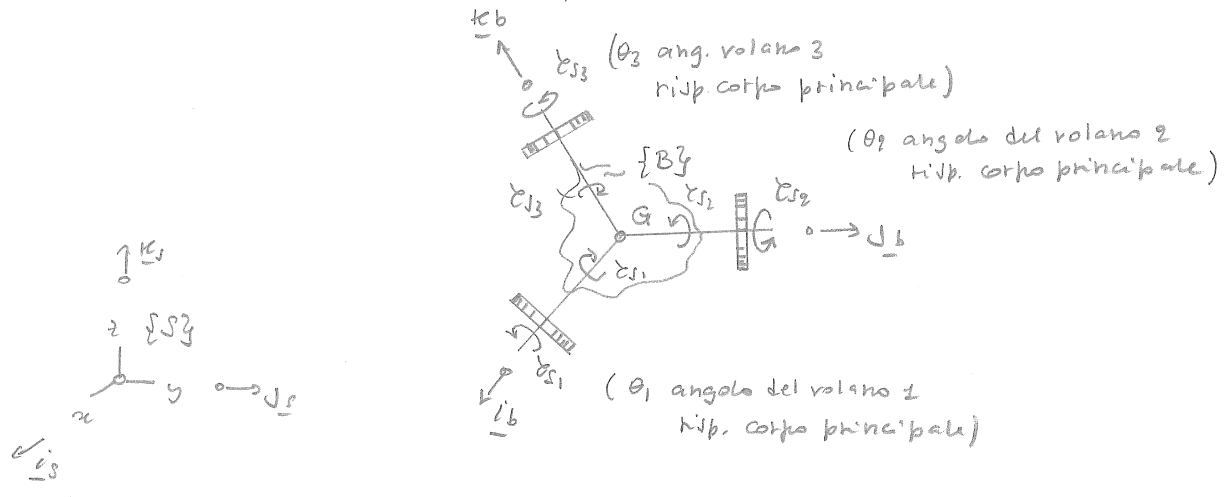 k b
τs3 (θ3 ang. volano 3
risp. corpo principale)
(θ2 angolo del volano 2
risp. corpo principale)
{B}
τs3
τs2
τs2
G
j b
τs1
ks
z {S}
y
js
x
is
τs1
i b
(θ1 angolo del volano 1
risp. corpo principale)